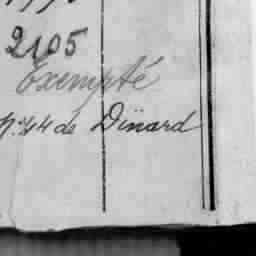 2105
Exempté
N° 44 de Dinard